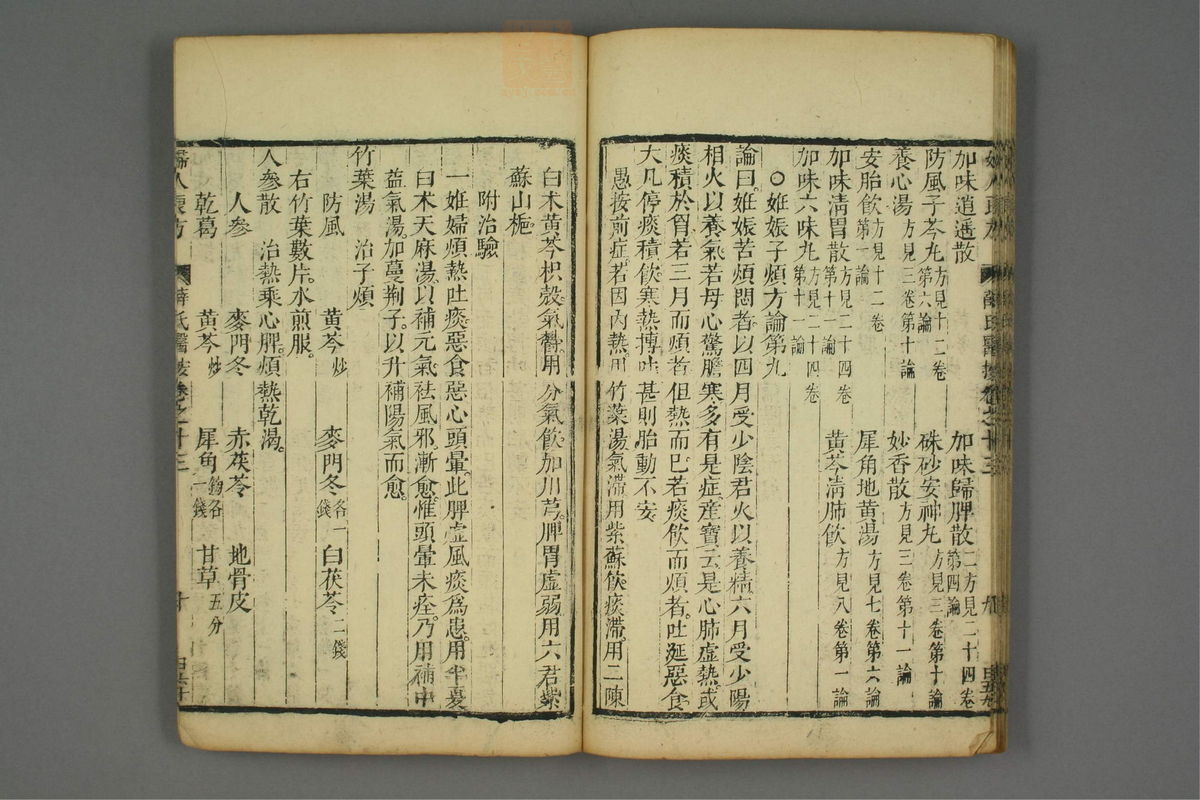 加味逍遥散 加味歸脾散二方見二十四卷第四論
防風子芩丸方見十二卷第六論 硃砂安神丸方見三卷第十論
養心湯方見三卷第十論 妙香散方見三卷第十一論
安胎飲方見十二卷第一論 犀角地黄湯方見七卷第六論
加味清胃散方見二十四卷第十一論 黄芩清肺飲方見八卷第一論
加味六味丸方見二十四卷第十一論
○姙娠子煩方論第九
論曰姙娠苦煩悶者以四月受少陰君火以養精六月受少陽
相火以養氣若母心驚膽寒多有是症産寶云是心肺虚熱或
痰積於胷若三月而煩者但熱而巳若痰飲而煩者吐涎惡食
大凡停痰積飲寒熱摶吐甚則胎動不安
愚按前症若因内熱用竹葉湯氣滯用紫蘇飲痰滯用二陳
白术黄芩枳殼氣欝用分氣飲加川芎脾胃虚弱用六君紫
蘇山梔
附治驗
一姙婦煩熱吐痰惡食惡心頭暈此脾虚風痰爲患用半夏
白术天麻湯以補元氣祛風邪漸愈惟頭暈未痊乃用補中
益氣湯加蔓荆子以升補陽氣而愈
竹葉湯 治子煩
防風 黄芩炒 麥門冬各一錢 白茯苓二錢
右竹葉數片水煎服
人參散 治熱乘心脾煩熱乾渴
人參 麥門冬 赤茯苓 地骨皮
乾葛 黄芩炒 犀角鎊各一錢 甘草五分
婦人良方 薛氏醫按卷之十三 十